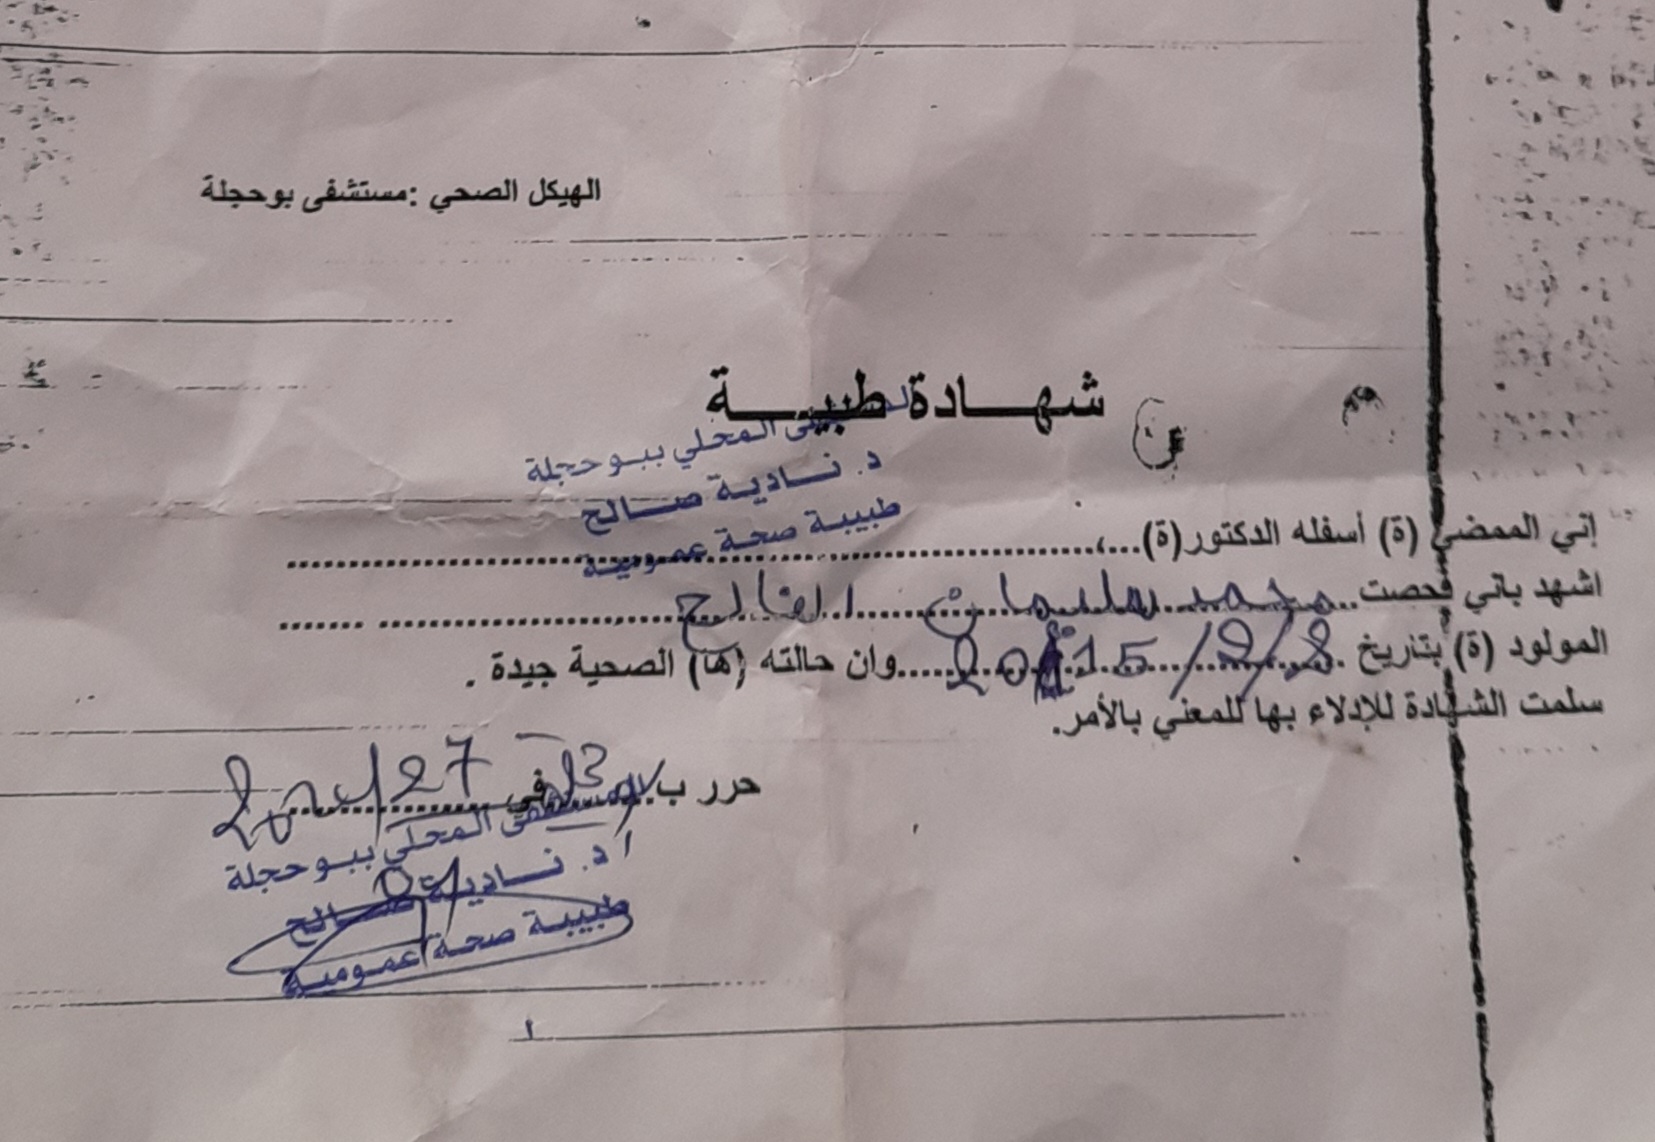 الهيكل الصحي :مستشفى بوحجلة
شهـــادة طبيـــة
المحلي ببوحجلة
د. نادية صالح
طبيبة صحة عمومية
إني الممضي (ة) أسفله الدكتور(ة)......
اشهد باني فحصت.. محمد سليمان ..........
المولود (ة) بتاريخ . 2015/9/8 ....وان حالته (ها) الصحية جيدة .
سلمت الشهادة للإدلاء بها للمعني بالأمر.
حرر ب...... في ......
المستشفى المحلي ببوحجلة
د. نادية صالح
طبيبة صحة عمومية